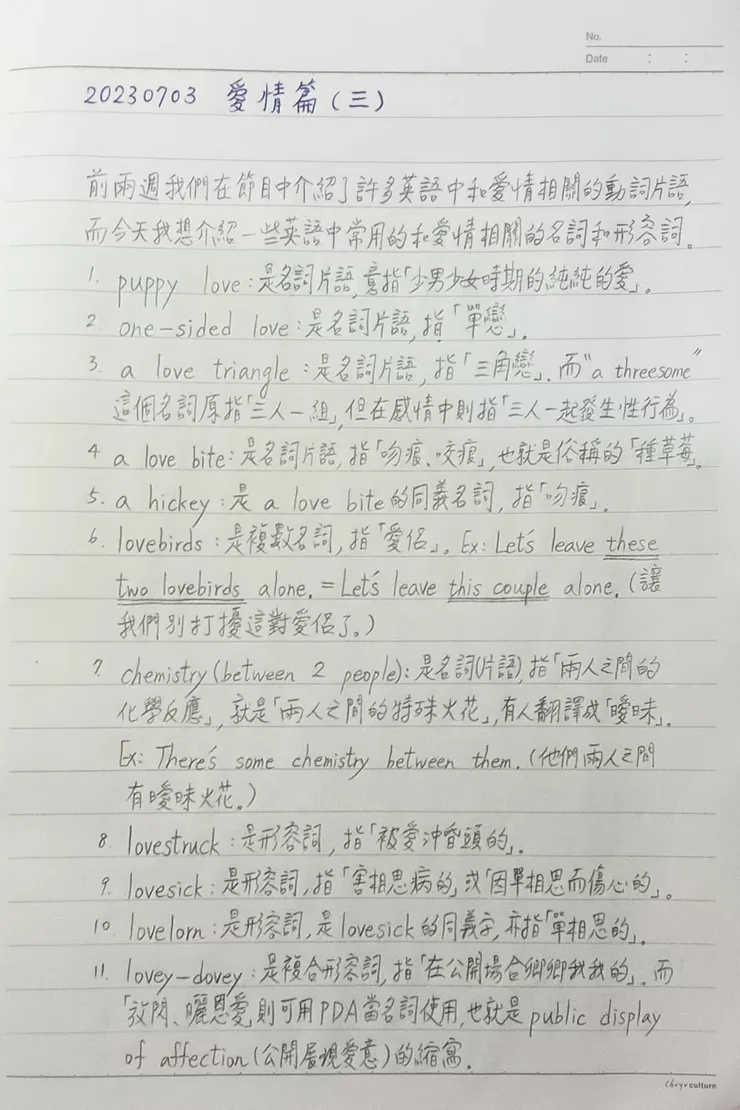 No.
Date : :
20230703 愛情篇(三)
前兩週我們在節目中介紹了許多英語中和愛情相關的動詞片語,
而今天我想介紹一些英語中常用的和愛情相關的名詞和形容詞。
1. puppy love:是名詞片語,意指「少男少女時期的純純的愛」。
2. one-sided love:是名詞片語,指「單戀」。
3. a love triangle:是名詞片語,指「三角戀」.而"a threesome"
這個名詞原指「三人一組」,但在感情中則指「三人一起發生性行為」。
4 a love bite:是名詞片語,指「吻痕、咬痕」,也就是俗稱的「種草莓」。
5. a hickey:是 a love bite的同義名詞,指「吻痕」.
6. lovebirds:是複數名詞,指「愛侶」。Ex: Let's leave these
two lovebirds alone. = Let's leave this couple alone.(讓
我們別打擾這對愛侶了。)
7. chemistry(between 2 people):是名詞(片語),指「兩人之間的
化學反應」,就是「兩人之間的特殊火花」,有人翻譯成「曖昧」.
Ex: There's some chemistry between them.(他們兩人之間
有曖昧火花。)
8. lovestruck:是形容詞,指「被愛沖昏頭的」.
9. lovesick:是形容詞,指「害相思病的」或「因單相思而傷心的」。
10. lovelorn:是形容詞,是lovesick的同義字,亦指「單相思的」.
11. lovey-dovey:是複合形容詞,指「在公開場合卿卿我我的」.而
「放閃、曬恩愛」則可用PDA當名詞使用,也就是public display
of affection(公開展現愛意)的縮寫.
Chry culture